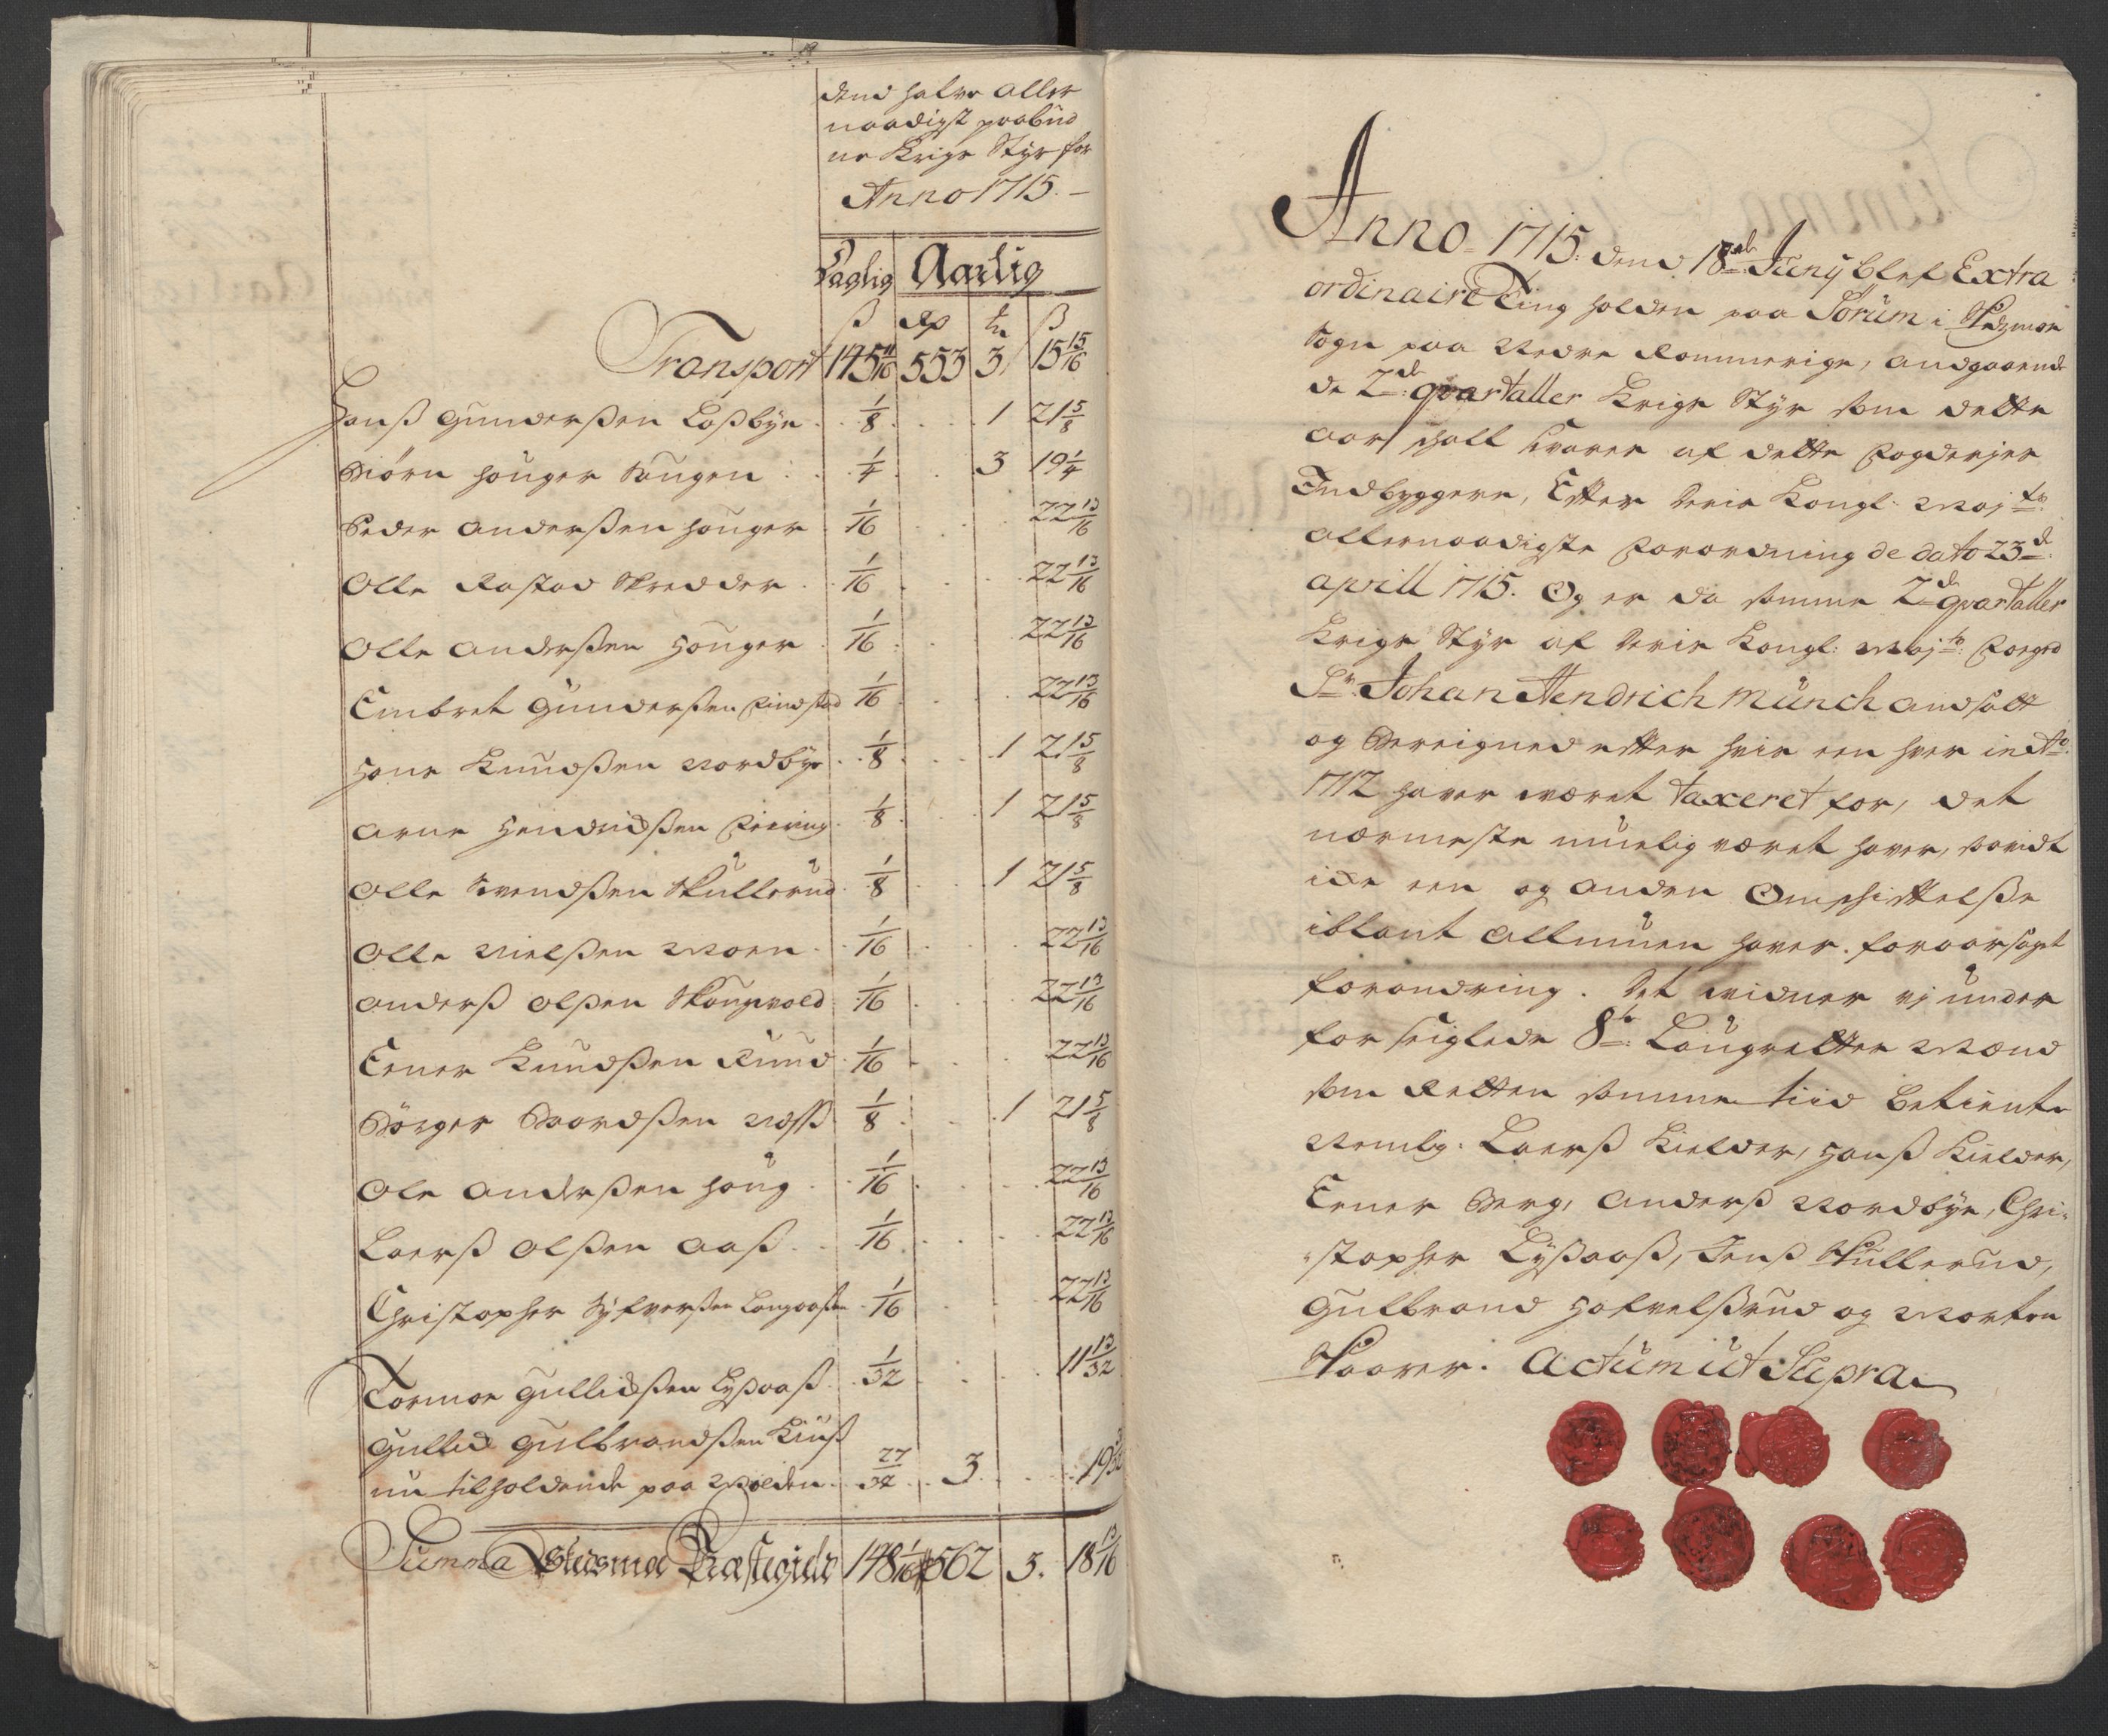 dend halve aller
naadigst paabud
ne Krigs Styr for
Anno 1715. –
Daglig Aarlig
ß Rdr ß
Transport 145 11/16 553 3 15 15/16
Hanß Gunderßen Loßbye 1/8 1 21 5/8
Biørn Houger Haugen 1/4 3 19 1/4
Peder Anderßen Houger 1/16 22 13/16
Olle Rastad Skredder 1/16 22 13/16
Olle Anderßen Houger 1/16 22 13/16
Embret Gunderßen Findstad 1/16 22 13/16
Hans Knudßen Nordbye 1/8 1 21 5/8
Arne Hendrichßen 1/8 1 21 5/8
Olle Svendßen Skullerud 1/8 1 21 5/8
Olle Nielßen Moen 1/16 22 13/16
Anderß Olßen Skougvold 1/16 22 13/16
Ener Knudßen Ruud 1/16 22 13/16
Børger Baardßen Næss 1/8 1 21 5/8
Ole Anderßen Houg 1/16 22 13/16
Laerß Olßen Aaß 1/16 22 13/16
Christopher Sylverßen Langaaßen 1/16 22 13/16
Tormoe Gullichßen Lyßaaß 1/32 11 13/32
Gullich Gulbrandßen Kiuß
nu tilholdende paa Molden 27/32 3 19
Summa Skedsmoe Præstegield 148 1/16 562 3. 18 13/16
Anno 1715. dend 18de Juny blef Extra
ordinaire Ting holden paa Sørum i Skedsmoe
Sogn paa Nedre Rommerige, andgaaende
de 2de qvartaller Krigs Styr som dette
aar schall svares af dette Fogderies
Indbyggere, Efter Deris Kongl: Mayts:
allernaadigste Forordning de dato 23de
aprill 1715. Og er da samme 2de qvartaller
Krigs Styr af Deris Kongl: Mayts: Foged
Sr. Johan Hendrich Münch andsatt
og Bereigned efter hvis een hver in Ao:
1712 haver været taxeret for, det
nærmeste muelig været haver, saavidt
icke een og anden Omschiftelße
iblant allmuen haver foraarsaget
forandring. Det vidner vj under
for seiglede 8te Laugrettes Mænd
som Retten samme tiid betiente
Nemlig. Laerß Kielder, Hanß Kielder,
Ener Berg, Anderß Nordbye, Chri-
stopher Lyßaaß, Jenß Skullerud,
Gulbrand Hafvelßrud og Morten
Skaarer. Actum ut Supra